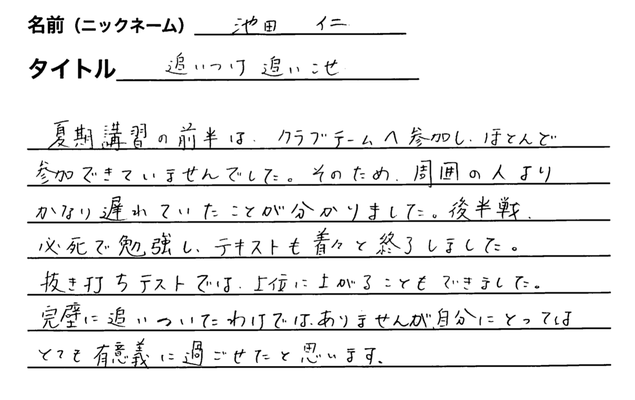 名前（ニックネーム） 池田 仁
タイトル 追いつけ 追いこせ
夏期講習の前半は、クラブチームへ参加し、ほとんど
参加できていませんでした。そのため、周囲の人より
かなり遅れていたことが分かりました。後半戦、
必死で勉強し、テキストも着々と終了しました。
抜き打ちテストでは、上位に上がることもできました。
完璧に追いついたわけではありませんが自分にとっては
とても有意義に過ごせたと思います。